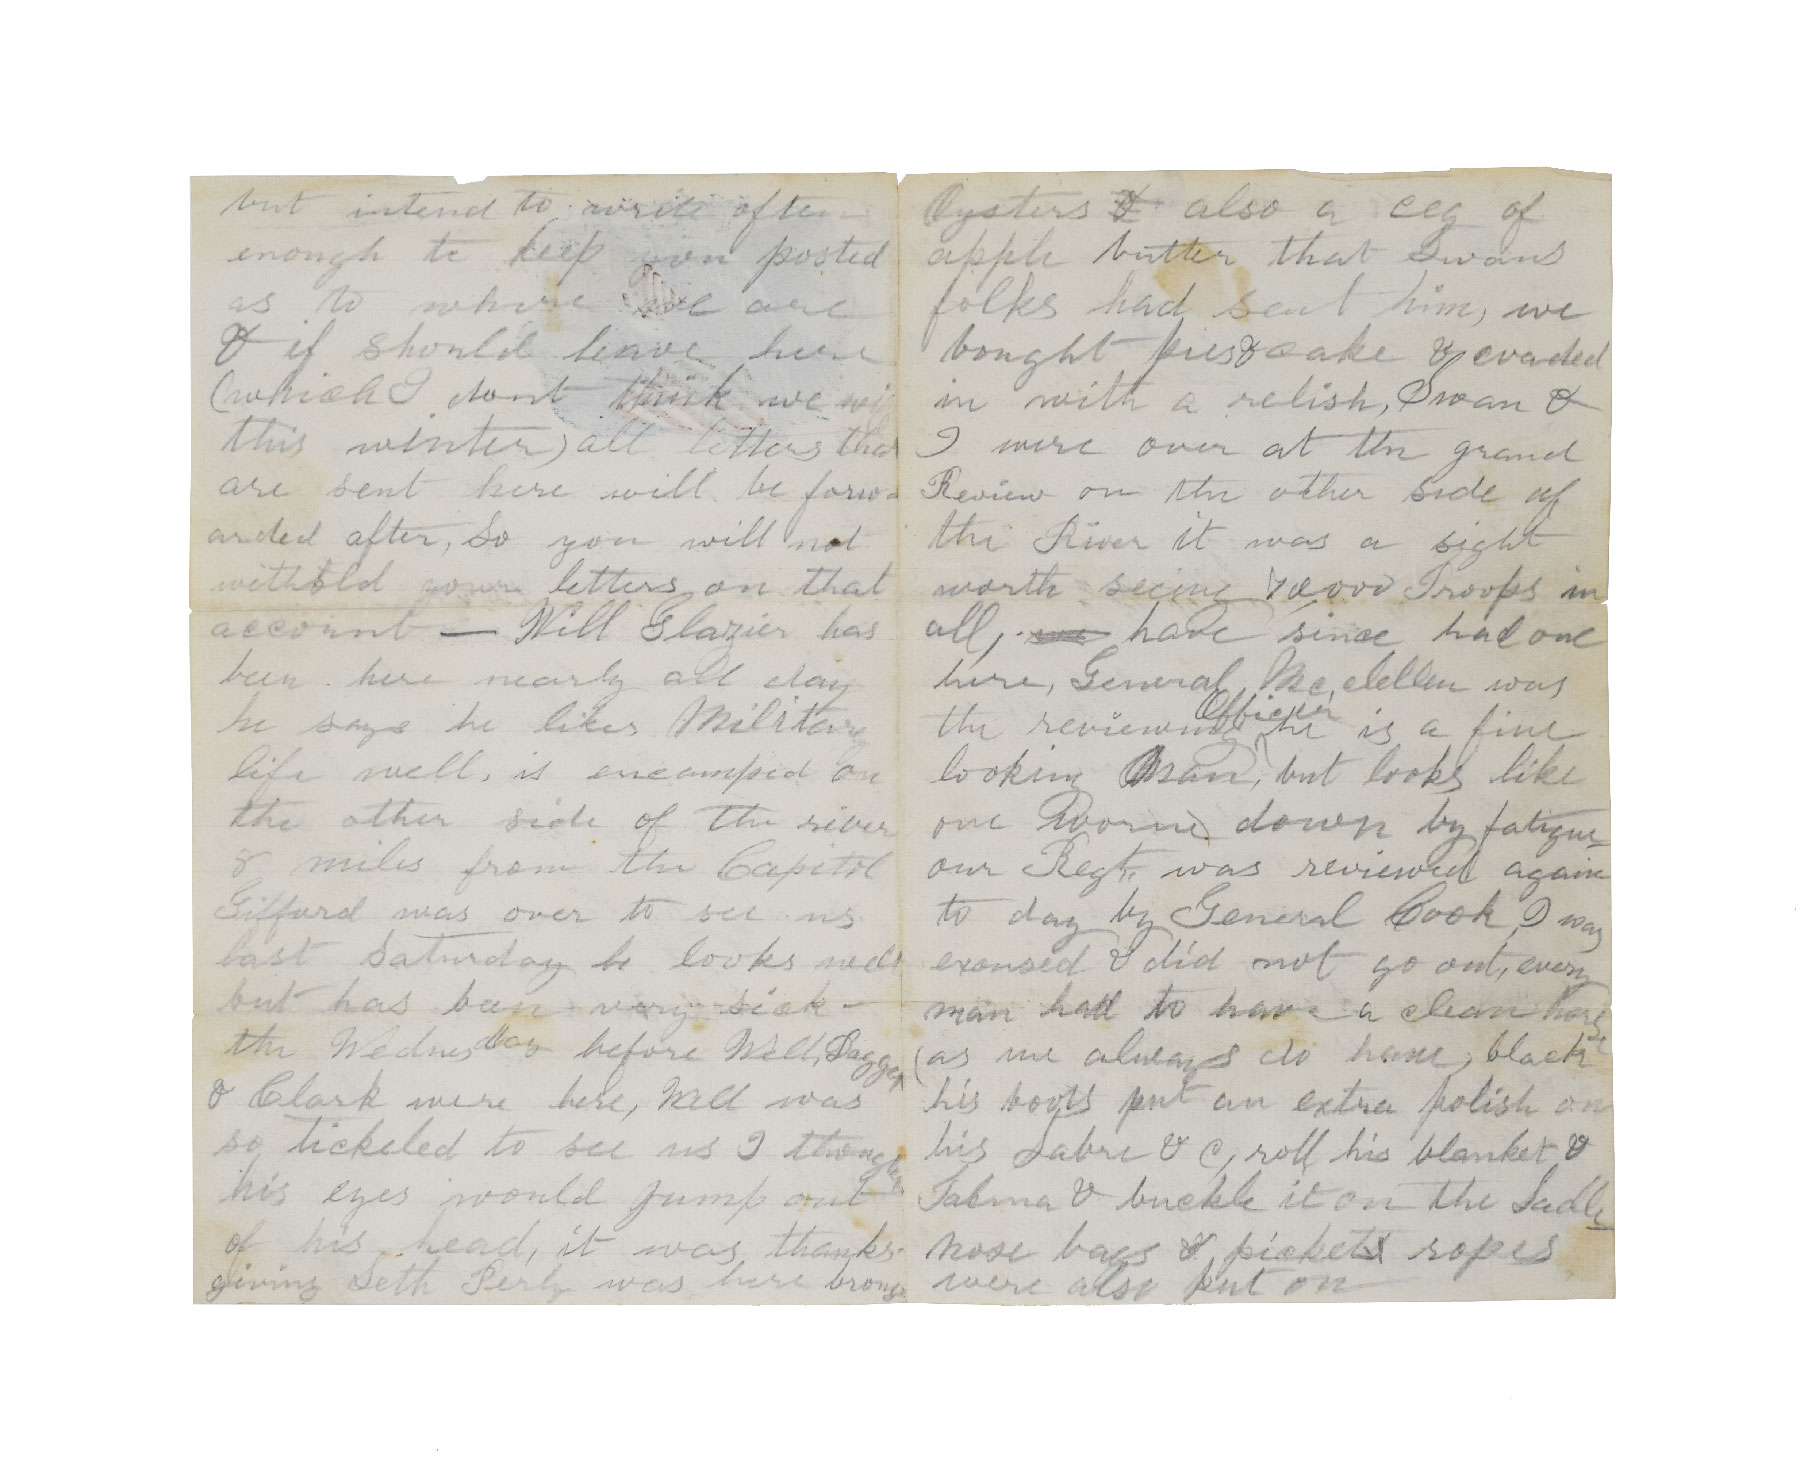 but intend to write often
enough to keep you posted
as to where we are
& if should leave here
(which I dont think we wi
this winter) all letters that
are sent here will be forw-
arded after, So you will not
withold your letters on that
account — Will Glazier has
been here nearly all day
he says he likes Military
life well, is encamped on
the other side of the river
8 miles from the Capitol
Gifford was over to see us
last Saturday he looks well
but has been very sick —
the Wednesday before Well,
& Clark were here, Well was
so tickeled to see us I though
his eyes would jump out
of his head, it was thanks-
giving Seth Perly was here brong
Oysters & also a ceg of
apple butter that Swans
folks had sent him, we
bought pies & cake & evaded
in with a relish, Swan &
I were over at the grand
Review on the other side of
the River it was a sight
worth seeing 70,000 Troops in
all, have since had one
here, General Mc,clellen was
the reviewing Officer he is a fine
looking Man, but looks like
one Worne down by fatigue
our Regt, was reviewed again
to day by General Cook, I was
excused & did not go out, every
man had to have a clean horse
(as we always do have) black
his boots put an extra polish on
his Sabre & C, roll his blanket &
Talma & buckle it on the Sadle
nose bags & pickets ropes
were also put on